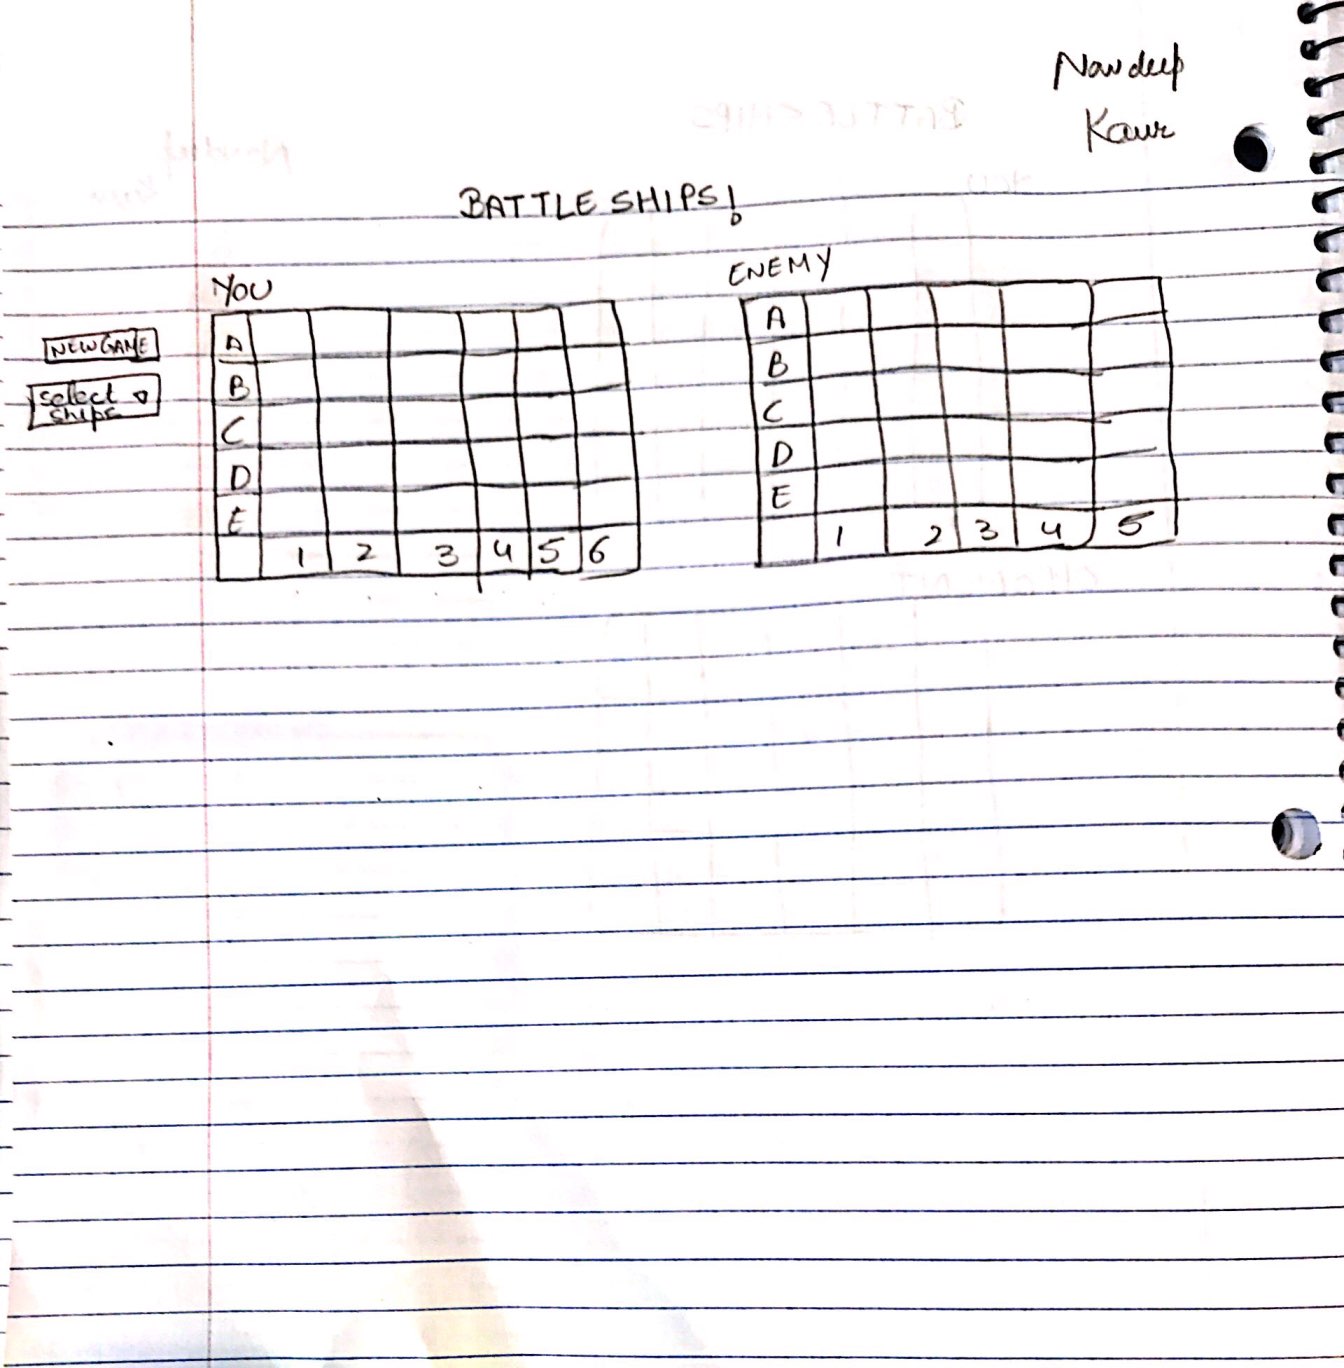 Navdeep
Kaur
BATTLE SHIPS!
YOU
ENEMY
NEW GAME
Select
Ships
A
B
C
D
E
1 2 3 4 5 6
A
B
C
D
E
1 2 3 4 5